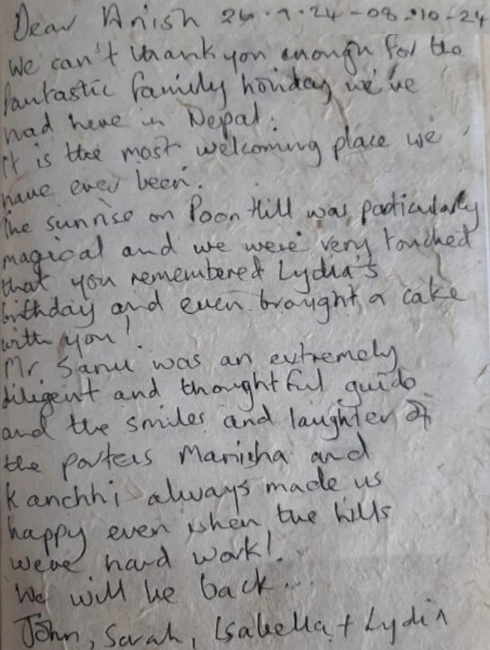 Dear Anish 24.9.24-08.10-24
We can't thank you enough for the
fantastic family holiday we've
had here in Nepal.
It is the most welcoming place we
have ever been.
The sunrise on Poon Hill was particularly
magical and we were very touched
that you remembered Lydia's
birthday and even brought a cake
with you!
Mr Sanu was an extremely
diligent and thoughtful guide
and the smiles and laughter of
the porters Manisha and
Kanchhi always made us
happy even when the hills
were hard work!
We will be back...
John, Sarah, Isabella + Lydia